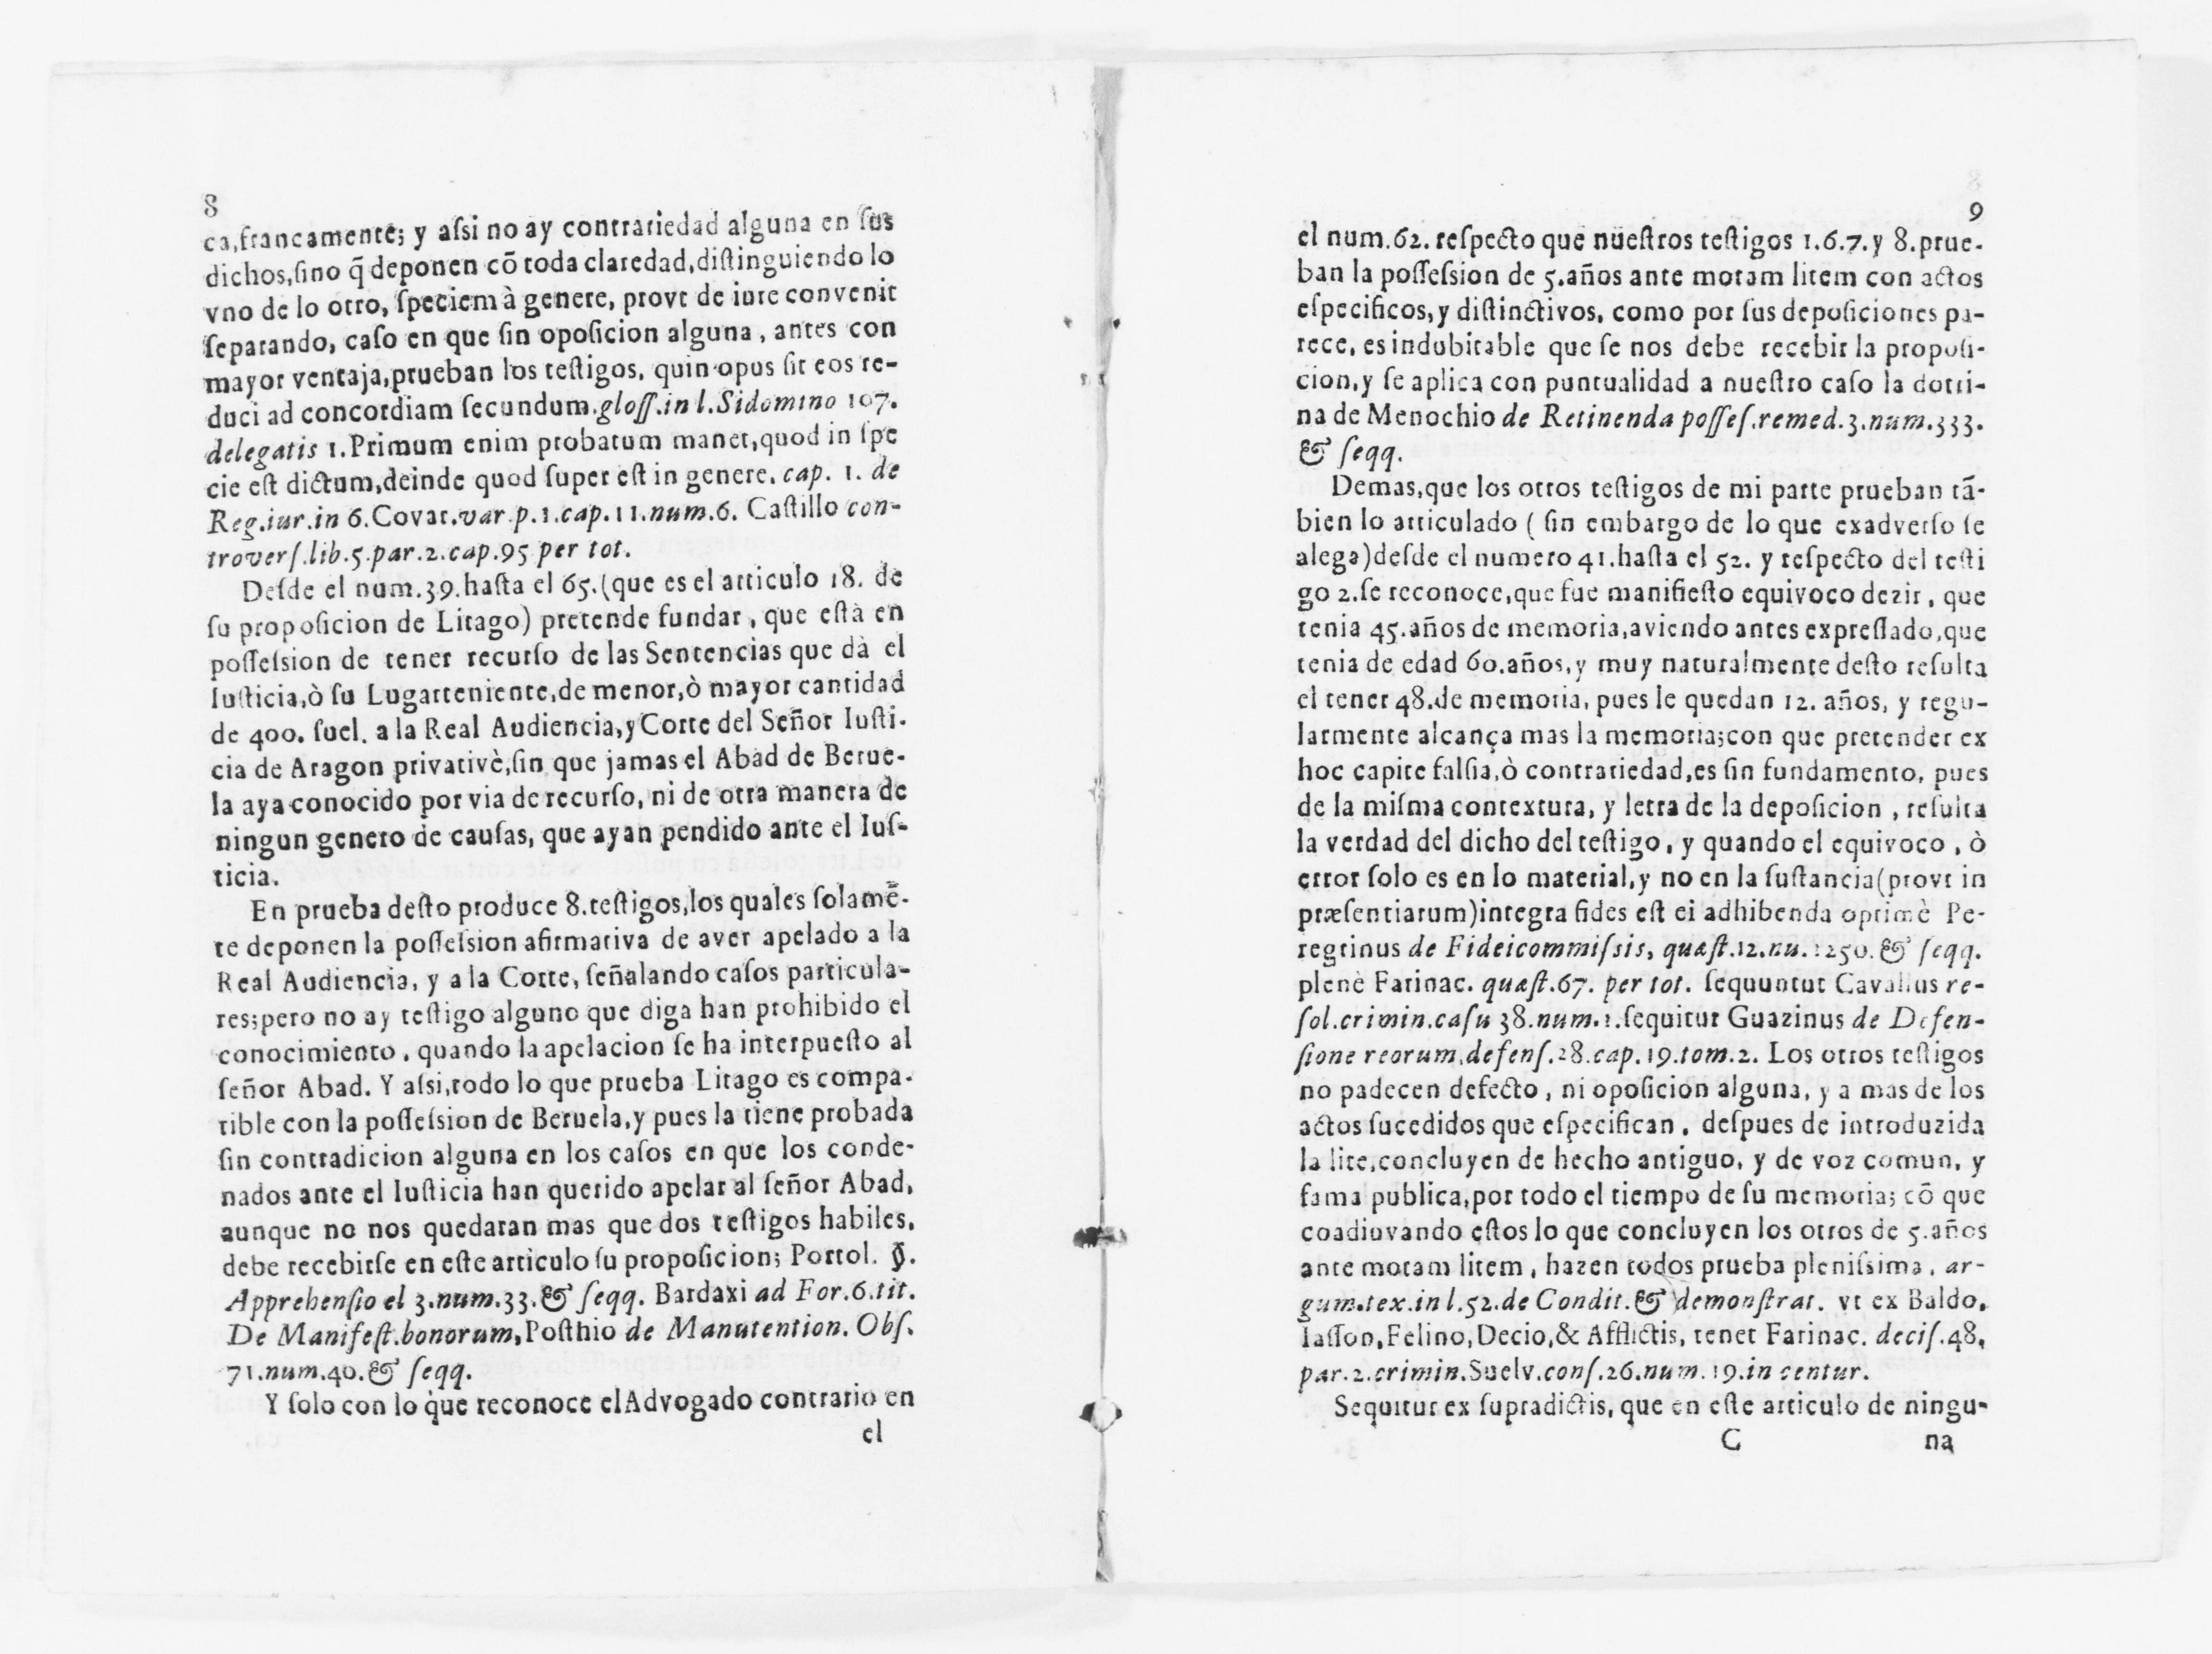 8
ca,francamente; y aſsi no ay contrariedad alguna en ſus
dichos,ſino q̃ deponen cõ toda claredad,diſtinguiendo lo
vno de lo otro, ſpeciem à genere, provt de iure convenit
ſeparando, caſo en que ſin opoſicion alguna, antes con
mayor ventaja,prueban los teſtigos, quin opus ſit eos re-
duci ad concordiam ſecundum.gloſſ.in l.Sidomino 107.
delegatis 1.Primum enim probatum manet,quod in ſpe
cie eſt dictum,deinde quod ſuper eſt in genere, cap. 1. de
Reg.iur.in 6.Covar.var.p.1.cap.11.num.6. Caſtillo con-
troverſ.lib.5.par.2.cap.95 per tot.
Deſde el num.39.haſta el 65.(que es el articulo 18. de
ſu propoſicion de Litago) pretende fundar, que eſtà en
poſſeſsion de tener recurſo de las Sentencias que dà el
Iuſticia,ò ſu Lugarteniente,de menor,ò mayor cantidad
de 400. ſuel. a la Real Audiencia,y Corte del Señor Iuſti-
cia de Aragon privativè,ſin que jamas el Abad de Berue-
la aya conocido por via de recurſo, ni de otra manera de
ningun genero de cauſas, que ayan pendido ante el Iuſ-
ticia.
En prueba deſto produce 8.teſtigos,los quales ſolamẽ-
te deponen la poſſeſsion afirmativa de aver apelado a la
Real Audiencia, y a la Corte, ſeñalando caſos particula-
res;pero no ay teſtigo alguno que diga han prohibido el
conocimiento, quando la apelacion ſe ha interpueſto al
ſeñor Abad. Y aſsi,todo lo que prueba Litago es compa-
tible con la poſſeſsion de Beruela,y pues la tiene probada
ſin contradicion alguna en los caſos en que los conde-
nados ante el Iuſticia han querido apelar al ſeñor Abad,
aunque no nos quedaran mas que dos teſtigos habiles,
debe recebirſe en eſte articulo ſu propoſicion; Portol. §.
Apprehenſio el 3.num.33.& ſeqq. Bardaxi ad For.6.tit.
De Manifeſt.bonorum,Poſthio de Manutention. Obſ.
71.num.40.& ſeqq.
Y ſolo con lo que reconoce el Advogado contrario en
el
9
el num.62. reſpecto que nueſtros teſtigos 1.6.7.y 8.prue-
ban la poſſeſsion de 5.años ante motam litem con actos
eſpecificos,y diſtinctivos, como por ſus depoſiciones pa-
rece, es indubitable que ſe nos debe recebir la propoſi-
cion,y ſe aplica con puntualidad a nueſtro caſo la dotri-
na de Menochio de Retinenda poſſeſ.remed.3.num.333.
& ſeqq.
Demas,que los otros teſtigos de mi parte prueban tã-
bien lo articulado ( ſin embargo de lo que exadverſo ſe
alega)deſde el numero 41.haſta el 52. y reſpecto del teſti
go 2.ſe reconoce,que fue manifieſto equivoco dezir, que
tenia 45.años de memoria,aviendo antes expreſſado,que
tenia de edad 60.años,y muy naturalmente deſto reſulta
el tener 48.de memoria, pues le quedan 12. años, y regu-
larmente alcança mas la memoria;con que pretender ex
hoc capite falſia,ò contrariedad,es ſin fundamento, pues
de la miſma contextura, y letra de la depoſicion, reſulta
la verdad del dicho del teſtigo, y quando el equivoco, ò
error ſolo es en lo material,y no en la ſuſtancia(provt in
præſentiarum)integra fides eſt ei adhibenda optimè Pe-
regrinus de Fideicommiſsis, quæſt.12.nu.1250.& ſeqq.
plenè Farinac. quæſt.67. per tot. ſequuntur Cavallus re-
ſol.crimin.caſu 38.num.1.ſequitur Guazinus de Defen-
ſione reorum,defenſ.28.cap.19.tom.2. Los otros teſtigos
no padecen defecto, ni opoſicion alguna, y a mas de los
actos ſucedidos que eſpecifican, deſpues de introduzida
la lite,concluyen de hecho antiguo, y de voz comun, y
fama publica,por todo el tiempo de ſu memoria; cõ que
coadiuvando eſtos lo que concluyen los otros de 5.años
ante motam litem, hazen todos prueba pleniſsima, ar-
gum.tex.in l.52.de Condit.& demonſtrat. vt ex Baldo,
Iaſſon,Felino,Decio,& Afflictis, tenet Farinac. deciſ.48,
par.2.crimin.Suelv.conſ.26.num.19.in centur.
Sequitur ex ſupradictis, que en eſte articulo de ningu-
C na